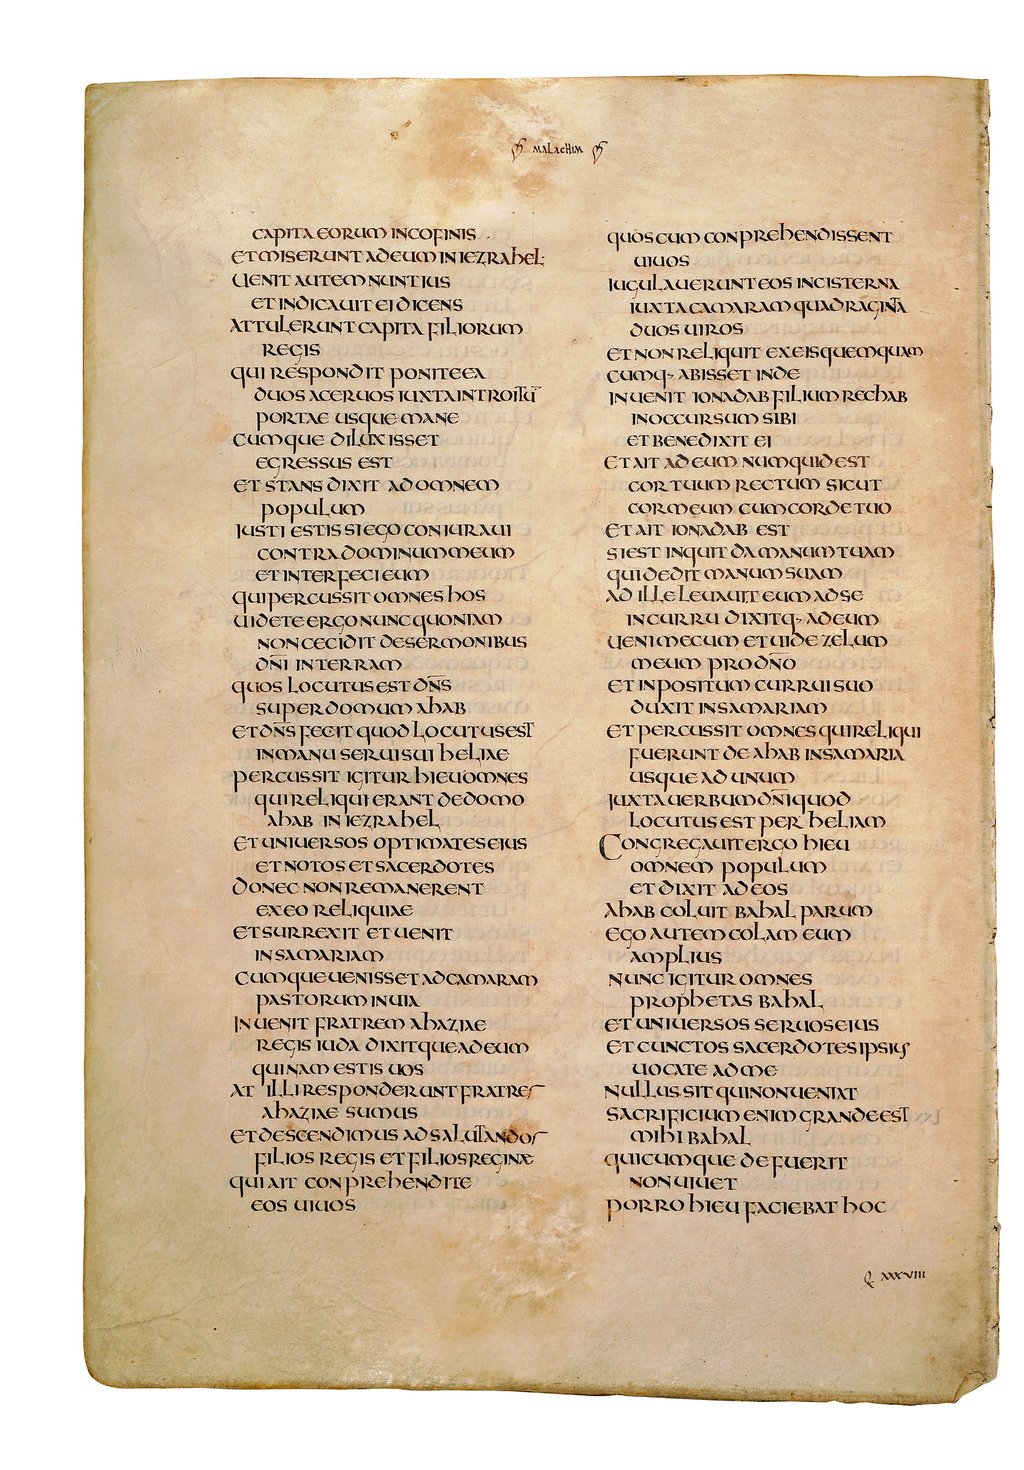 MALACHIM
CAPITA EORUM IN COFINIS
ET MISERUNT AD EUM IN IEZRAHEL
UENIT AUTEM NUNTIUS
ET INDICAUIT EI DICENS
ATTULERUNT CAPITA FILIORUM
REGIS
QUI RESPONDIT PONITE EA
DUOS ACERUOS IUXTA INTROITŪ
PORTAE USQUE MANE
CUMQUE DILUXISSET
EGRESSUS EST
ET STANS DIXIT AD OMNEM
POPULUM
IUSTI ESTIS SI EGO CONIURAUI
CONTRA DOMINUM MEUM
ET INTERFECI EUM
QUI PERCUSSIT OMNES HOS
UIDETE ERGO NUNC QUONIAM
NON CECIDIT DE SERMONIBUS
DN̄I IN TERRAM
QUOS LOCUTUS EST DN̄S
SUPER DOMUM AHAB
ET DN̄S FECIT QUOD LOCUTUS EST
IN MANU SERUI SUI HELIAE
PERCUSSIT IGITUR HIEU OMNES
QUI RELIQUI ERANT DE DOMO
AHAB IN IEZRAHEL
ET UNIUERSOS OPTIMATES EIUS
ET NOTOS ET SACERDOTES
DONEC NON REMANERENT
EX EO RELIQUIAE
ET SURREXIT ET UENIT
IN SAMARIAM
CUMQUE UENISSET AD CAMARAM
PASTORUM IN UIA
INUENIT FRATREM AHAZIAE
REGIS IUDA DIXITQUE AD EUM
QUINAM ESTIS UOS
AT ILLI RESPONDERUNT FRATRES
AHAZIAE SUMUS
ET DESCENDIMUS AD SALUTANDOS
FILIOS REGIS ET FILIOS REGINAE
QUI AIT CONPREHENDITE
EOS UIUOS
QUOS CUM CONPREHENDISSENT
UIUOS
IUGULAUERUNT EOS IN CISTERNA
IUXTA CAMARAM QUADRAGINTA
DUOS UIROS
ET NON RELIQUIT EX EIS QUEMQUAM
CUMQ· ABISSET INDE
INUENIT IONADAB FILIUM RECHAB
IN OCCURSUM SIBI
ET BENEDIXIT EI
ET AIT AD EUM NUMQUID EST
COR TUUM RECTUM SICUT
COR MEUM CUM CORDE TUO
ET AIT IONADAB EST
SI EST INQUIT DA MANUM TUAM
QUI DEDIT MANUM SUAM
AD ILLE LEUAUIT EUM AD SE
IN CURRU DIXITQ· AD EUM
UENI MECUM ET UIDE ZELUM
MEUM PRO DN̄O
ET INPOSITUM CURRUI SUO
DUXIT IN SAMARIAM
ET PERCUSSIT OMNES QUI RELIQUI
FUERUNT DE AHAB IN SAMARIA
USQUE AD UNUM
IUXTA UERBUM DN̄I QUOD
LOCUTUS EST PER HELIAM
CONGREGAUIT ERGO HIEU
OMNEM POPULUM
ET DIXIT AD EOS
AHAB COLUIT BAHAL PARUM
EGO AUTEM COLAM EUM
AMPLIUS
NUNC IGITUR OMNES
PROPHETAS BAHAL
ET UNIUERSOS SERUOS EIUS
ET CUNCTOS SACERDOTES IPSIUS
UOCATE AD ME
NULLUS SIT QUI NON UENIAT
SACRIFICIUM ENIM GRANDE EST
MIHI BAHAL
QUICUMQUE DEFUERIT
NON UIUET
PORRO HIEU FACIEBAT HOC
Q XXXVIII